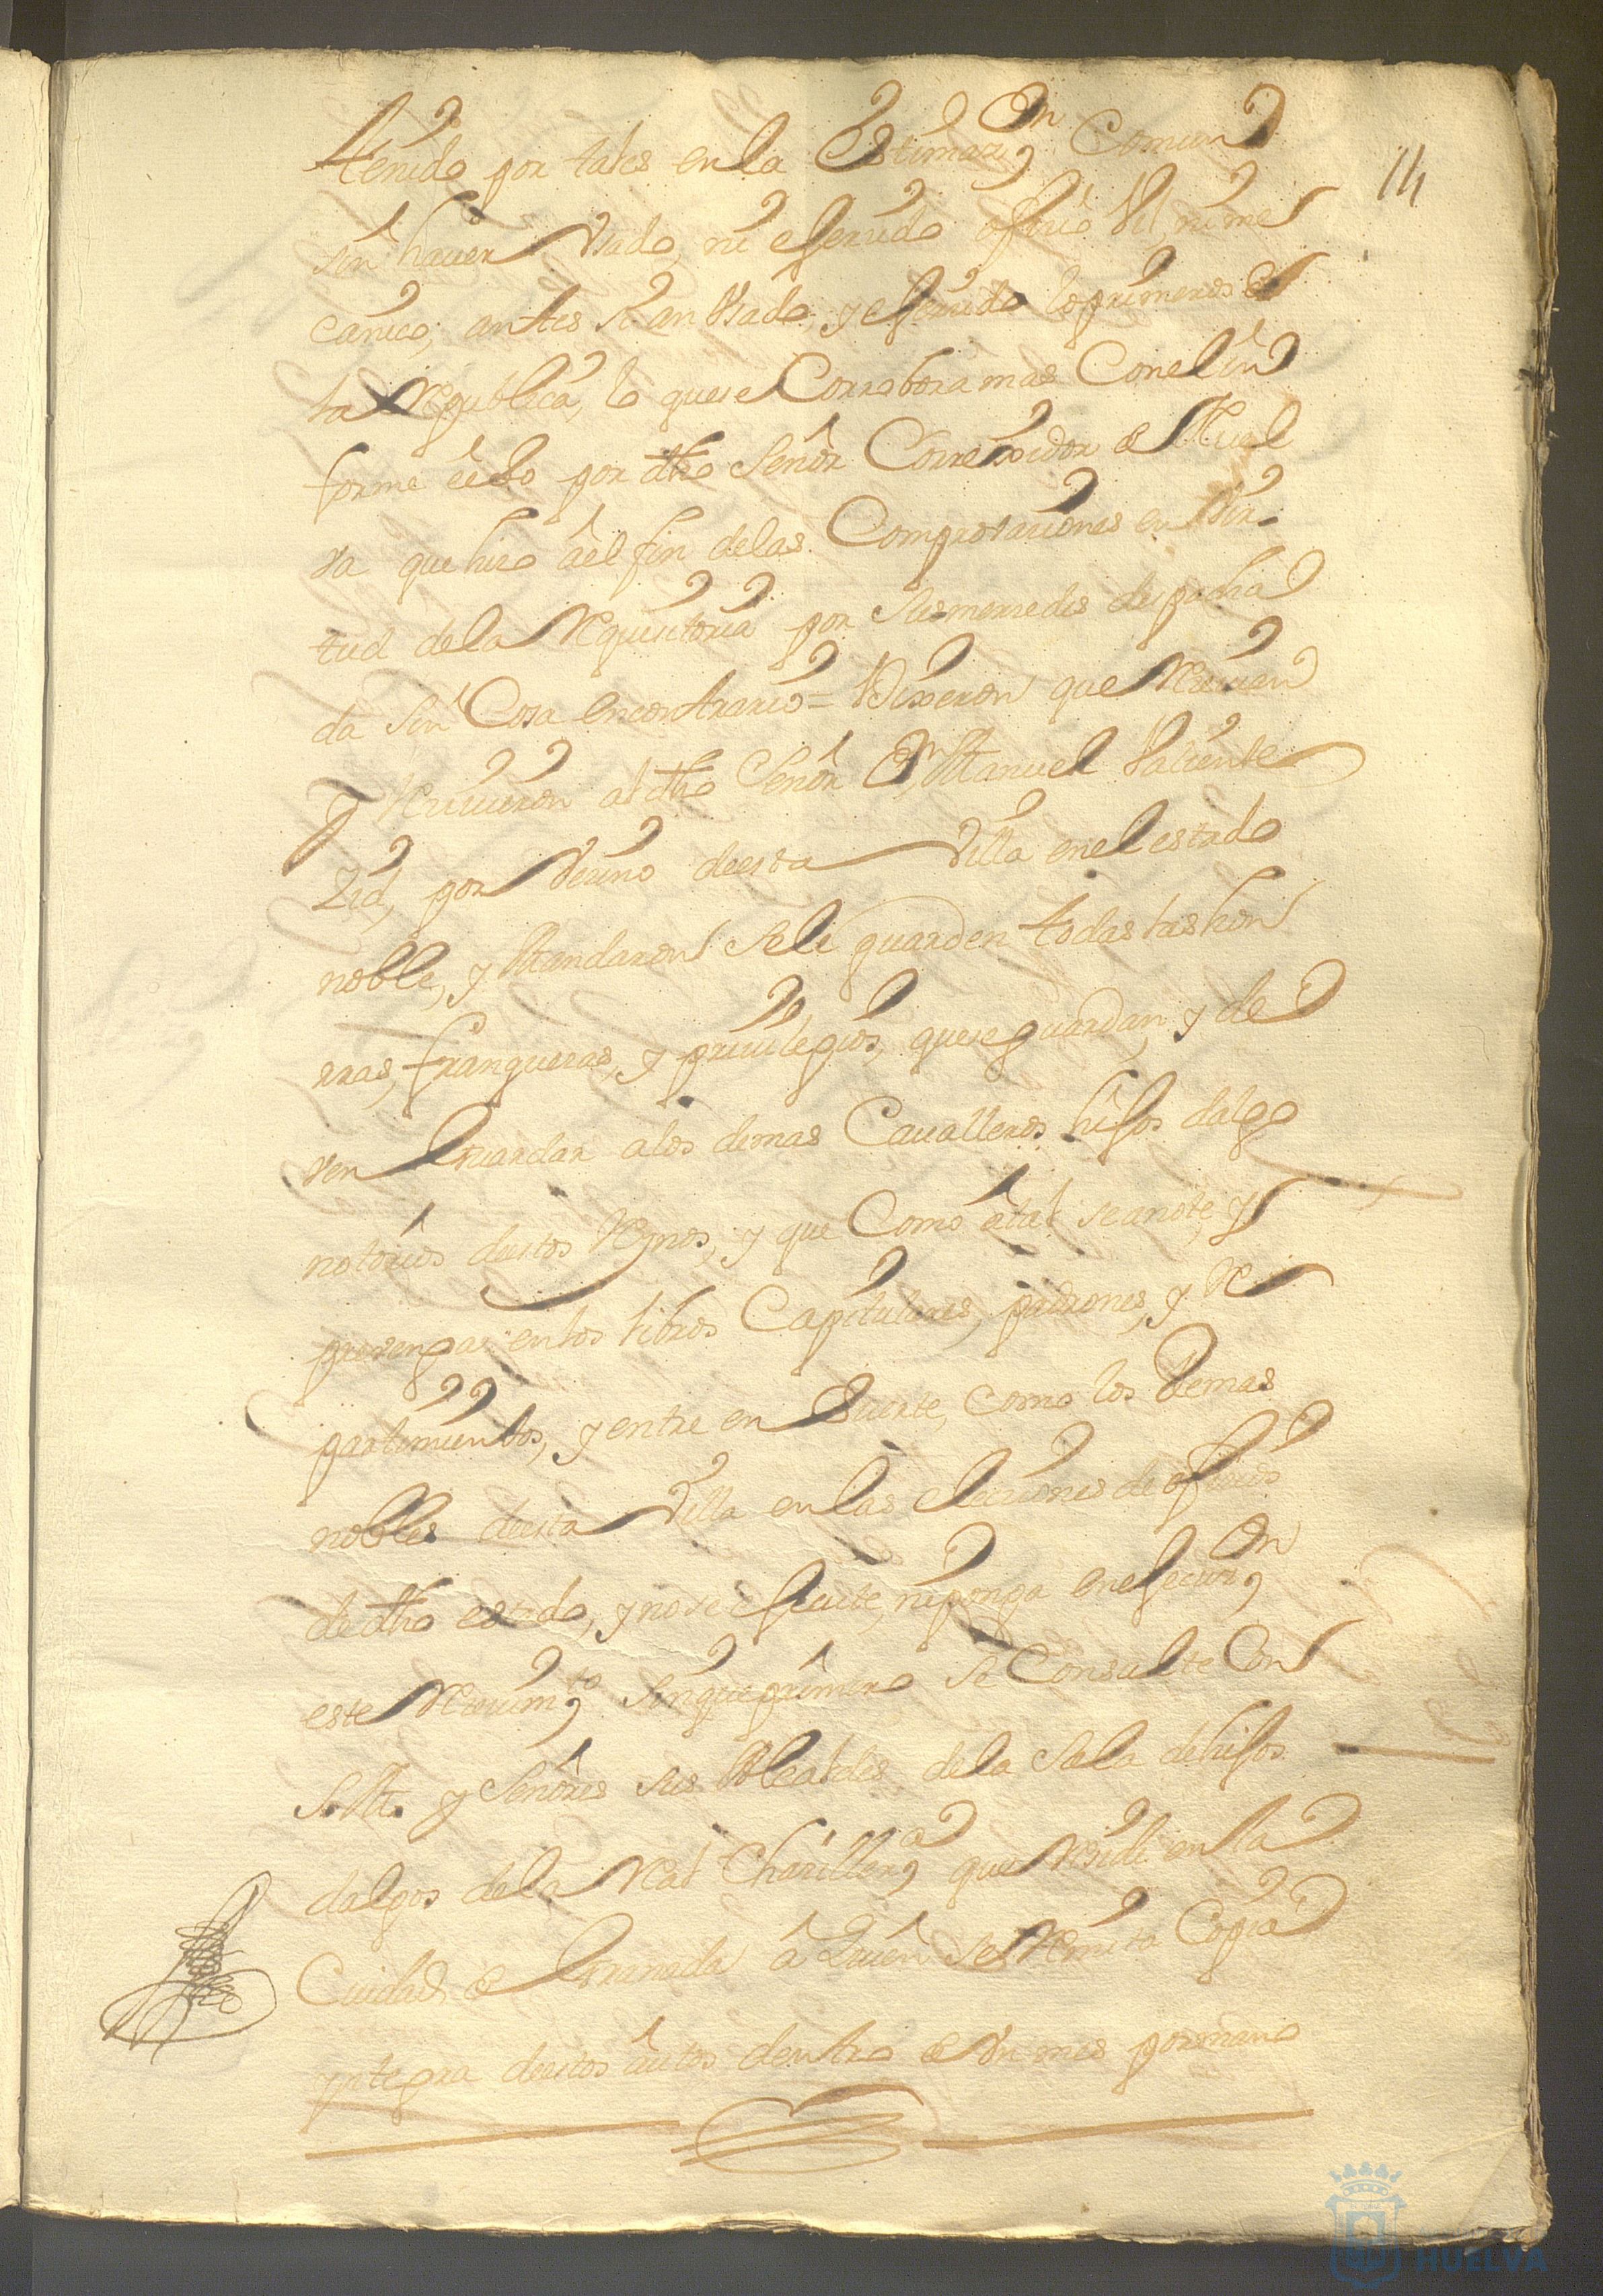 14
tenido por tales en la Estimazn Comun
sin hauer Vsado, ni esersido ofisio Vil, ni me
canico, antes si an Vsado, y esersido los primeros de
la Republica, lo que se Corrobora mas Con el in
forme êcho por dho Señor Correxidor de Huel
va que hiso âel fin de las Comprovaziones en Vir-
tud de la Requisitoria por Sus mersedes despacha
da sin Cosa en contrario = Dixeron que Reciuian
y Reciuieron al dho Señor Dn Manuel Valiente
Zid, por Vesino de esta Villa en el estado
noble, y Mandaron se le guarden todas las hon
rras, franquesas, y priuilegios, que se guardan, y de
ven Guardar a los demas Caualleros hijos dalgo
notorios de estos Reynos, y que Como âtal se anote, y
prevenga en los libros Capitulares, padrones, y Re
partimientos, y entre en Suerte, como los Demas
nobles de esta Villa en las elecciones de ofisios
de dho estado, y no se esecute, ni ponga en esecuzn
este Reciuimto sin que primero se Consulte Con
S. M. y Señores sus Alcaldes de la Sala de hijos
dalgos de la Real Chansilleria que Reside en la
Ciudad de Granada â Quien se Remita Copia
yntegra de estos âutos dentro de Vn mes por mano
HUELVA